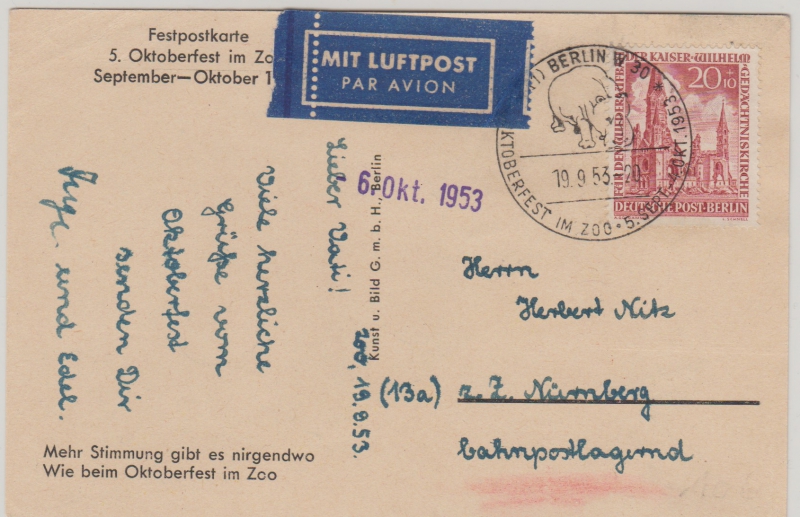 Festpostkarte
5. Oktoberfest im Zoo
September—Oktober 1
MIT LUFTPOST
PAR AVION
BERLIN W 30
19.9.53.-20
OKTOBERFEST IM ZOO · 5.
OKT. 1953 *
KAISER-WILHELM-GEDÄCHTNISKIRCHE
20+10
DEUTSCHE POST·BERLIN
6. Okt. 1953
Zoo, 19.9.53.
Lieber Vati!
Viele herzliche
Grüße vom
Oktoberfest
senden Dir
und Edel.
Kunst u. Bild G. m. b. H., Berlin
Herrn
Herbert Nitz
(13a) z. Z. Nürnberg
bahnpostlagernd
Mehr Stimmung gibt es nirgendwo
Wie beim Oktoberfest im Zoo